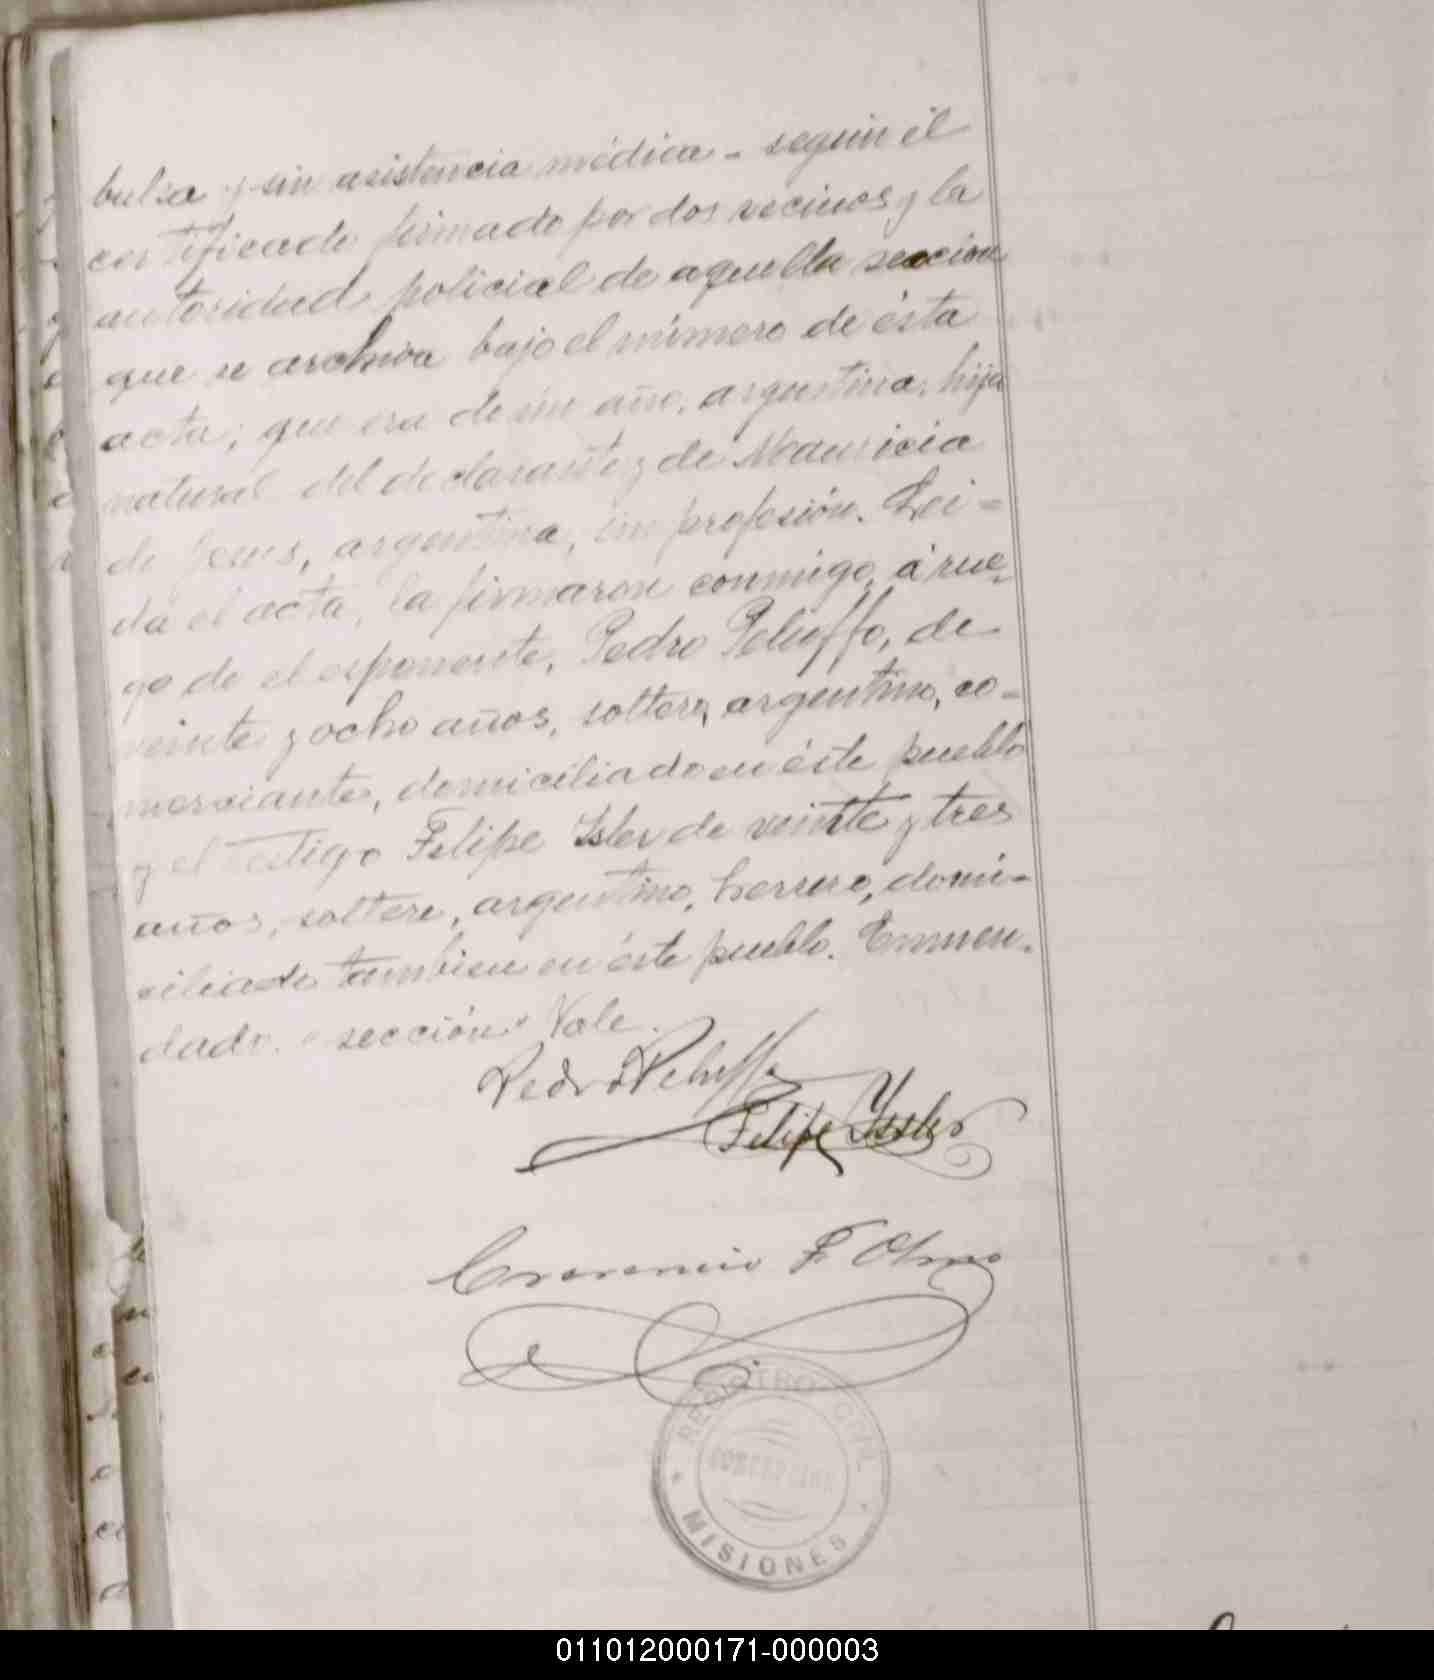 bulsa y sin asistencia médica - según el
certificado firmado por dos vecinos y la
autoridad policial de aquella sección
que se archiva bajo el número de ésta
acta; que era de un año, argentina, hija
natural del declarante y de Mauricia
de Jesus, argentina, sin profesión. Lei=
da el acta, la firmaron conmigo, á rue-
go de el esponente, Pedro Peluffo, de
veinte y ocho años, soltero, argentino, co=
merciante, domiciliado en éste pueblo
y el testigo Felipe Isler de veinte y tres
años, soltero, argentino, herrero, domi=
ciliado tambien en éste pueblo. Enmen-
dado. "sección" Vale.
Pedro Peluffo
Felipe Yssler
F Olmo
REGISTRO CIVIL
CONCEPCION
MISIONES
011012000171-000003